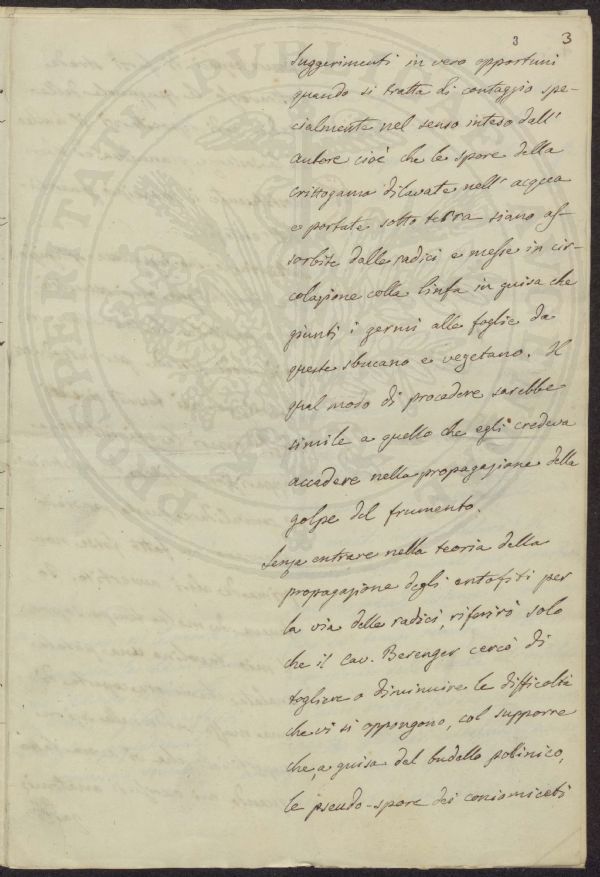 3 3
Suggerimenti in vero opportuni
quando si tratta di contaggio spe-
cialmente nel senso inteso dall'
autore cioè che le spore della
crittogama dilavate nell' acqua
e portate sotto terra siano as-
sorbite dalle radici e messe in cir-
colazione colla linfa in guisa che
giunti i germi alle foglie da
queste sbucano e vegetano. Il
qual modo di procedere sarebbe
simile a quello che egli credeva
accadere nella propagazione della
golpe del frumento.
Senza entrare nella teoria della
propagazione degli entofiti per
la via delle radici, riferirò solo
che il Cav. Berenger cercò di
togliere o diminuire le difficoltà
che vi si oppongono, col supporre
che, a guisa del budello pollinico,
le pseudo-spore dei coniomiceti